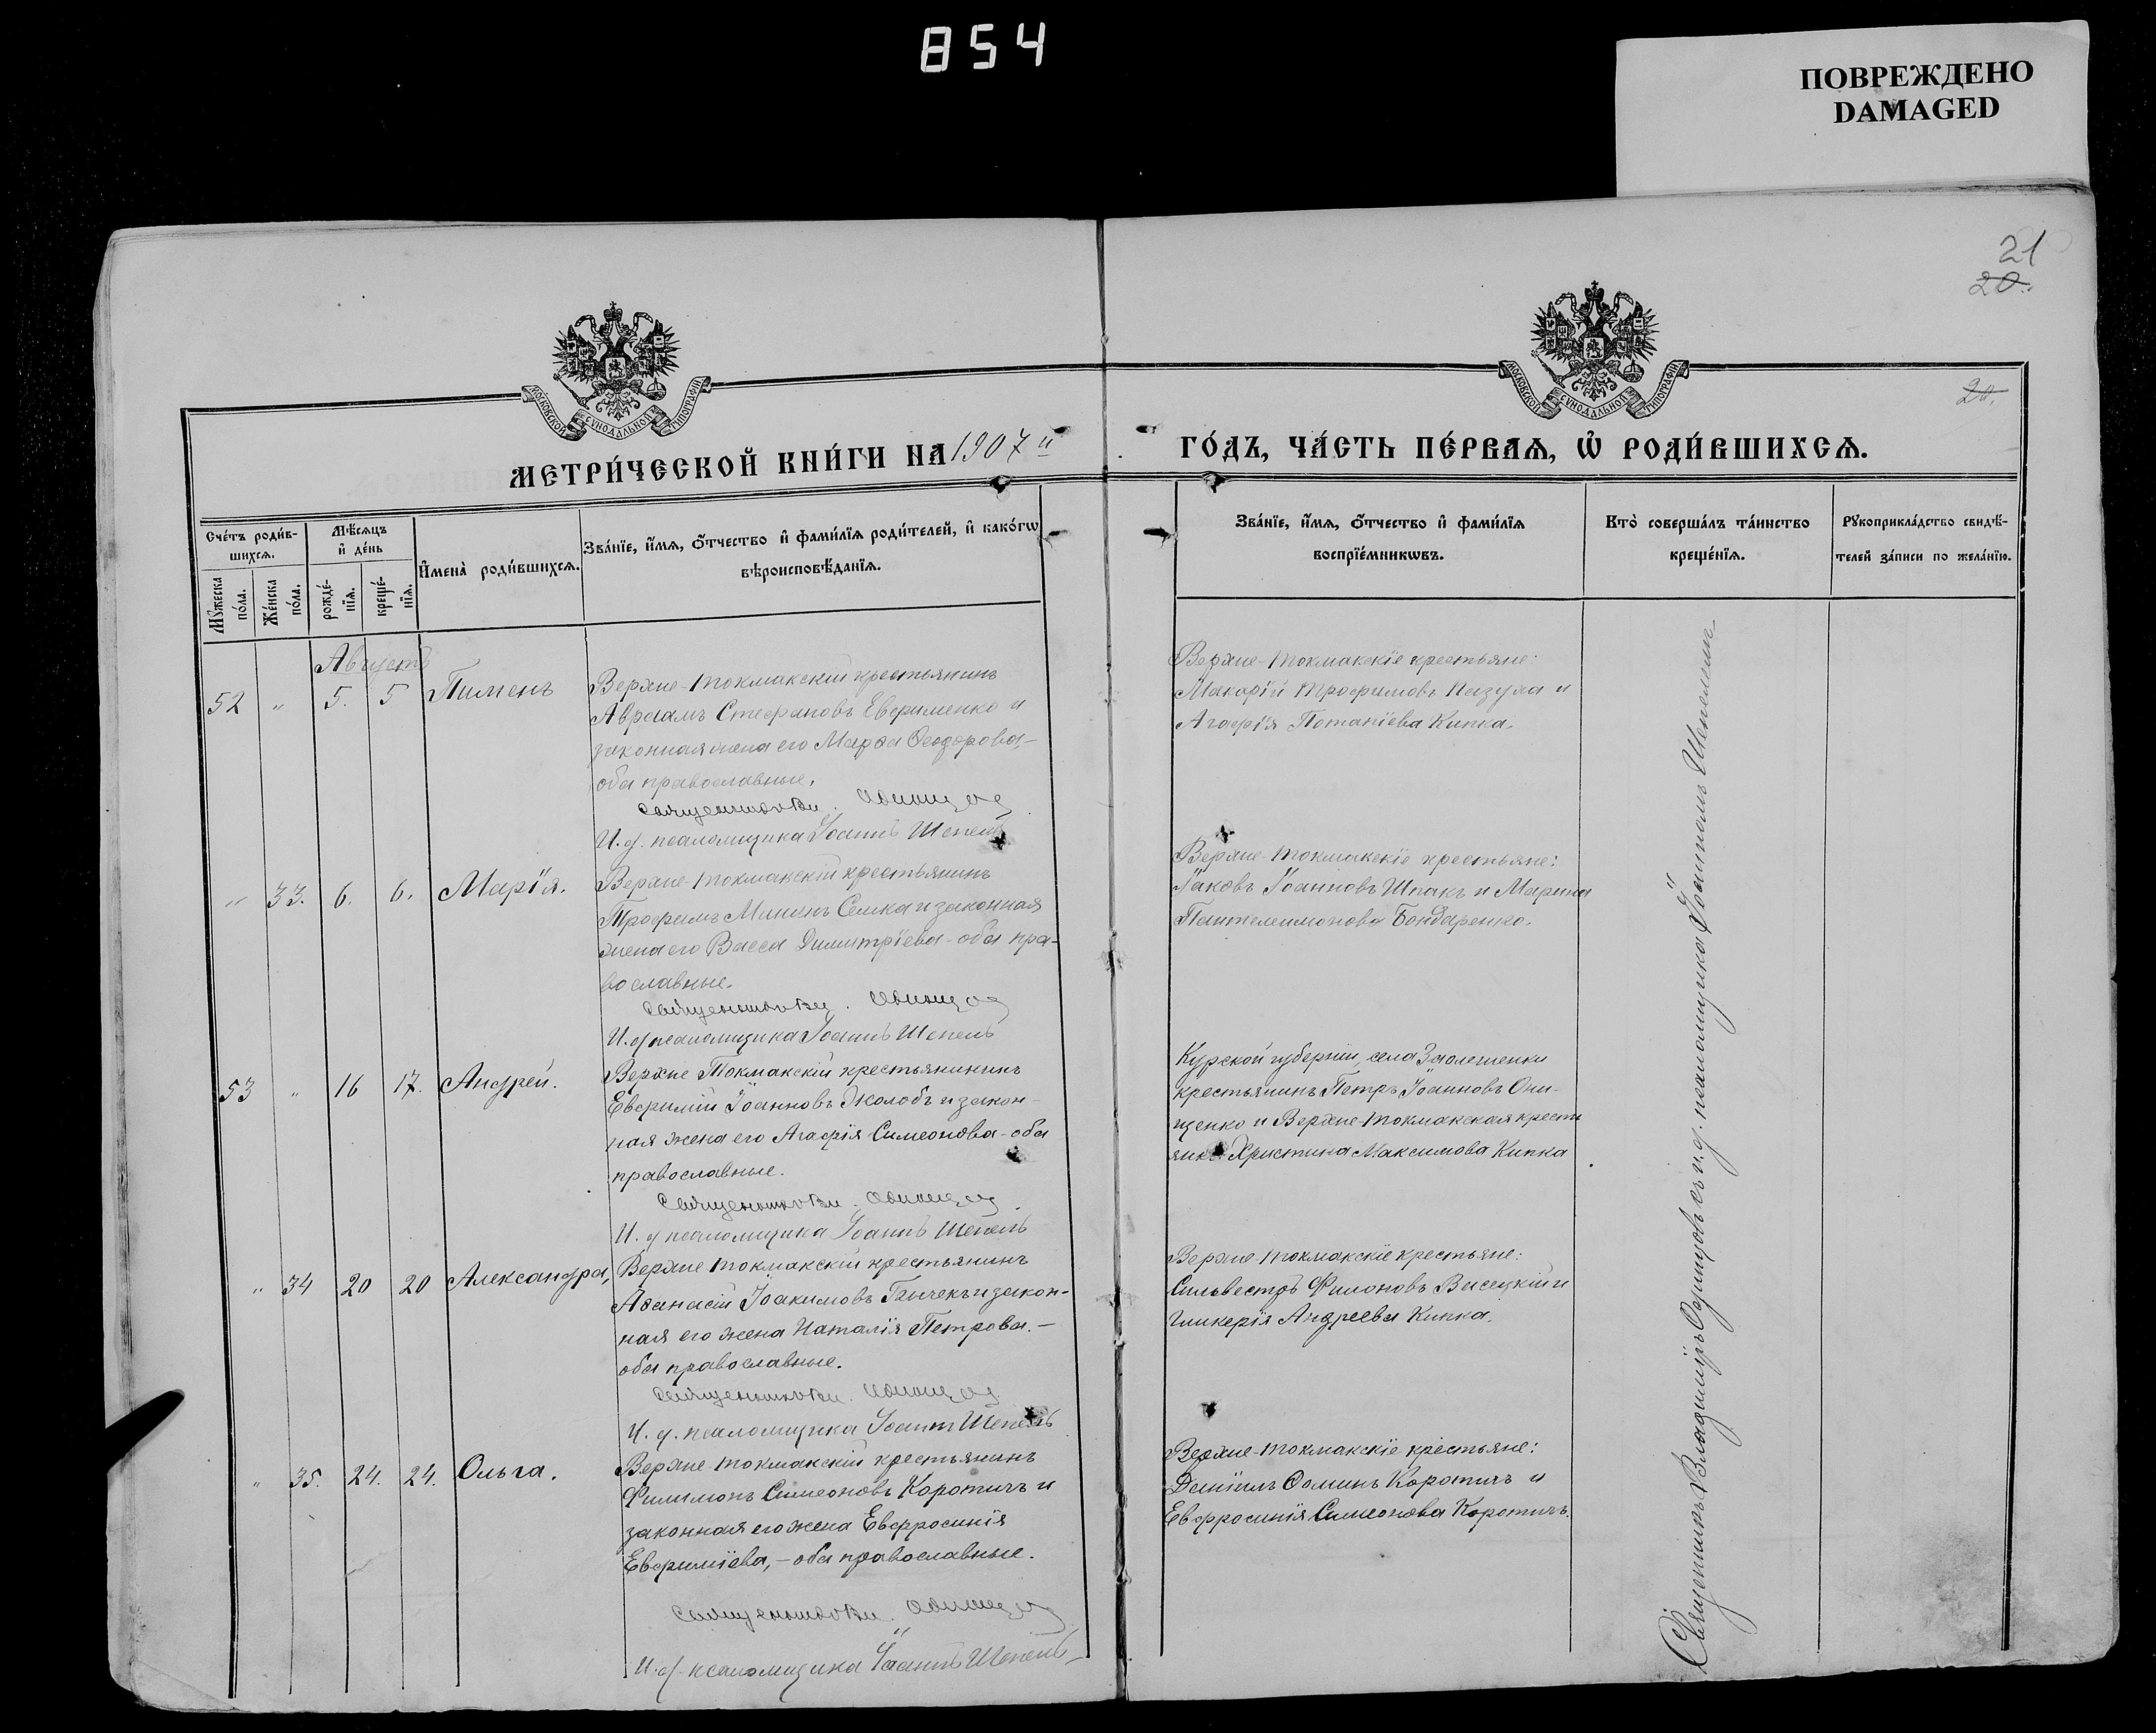 854
ПОВРЕЖДЕНО
DAMAGED
21
20.
20.
МОСКОВСКОЙ СѴНОДАЛЬНОЙ ТИПОГРАФІИ
МОСКОВСКОЙ СѴНОДАЛЬНОЙ ТИПОГРАФІИ
МЕТРИ́ЧЕСКОЙ КНИ́ГИ НА 1907 й
ГО́ДЪ, ЧА́СТЬ ПЕ́РВАѦ, Ѡ҆ РОДИ́ВШИХСѦ.
Сче́тъ роди́в-
шихсѧ.
Мꙋ́жеска по́ла.
Же́нска по́ла.
Мѣ́сѧцъ
и҆ де́нь
рожде́-
нїѧ.
креще́-
нїѧ.
И҆мена̀ роди́вшихсѧ.
Зва́нїе, и҆́мѧ, ѻ҆́тчество и҆ фами́лїѧ роди́телей, и҆ како́гѡ
вѣроисповѣ́данїѧ.
Зва́нїе, и҆́мѧ, ѻ҆́тчество и҆ фами́лїѧ
воспрїе́мникѡвъ.
Кто̀ соверша́лъ та́инство
креще́нїѧ.
Рꙋкоприкла́дство свидѣ́-
телей за́писи по жела́нїю.
Августъ
52 " 5. 5 Пименъ
Верхне-Токмакскій крестьянинъ
Авраамъ Стефановъ Евфименко и
законная жена его Марѳа Ѳеодорова,-
оба православные.
И.д. псаломщика Іоаннъ Шепель
Верхне-Токмакскіе крестьяне:
Макарій Трофимовъ Пазуха и
Агафія Потапіева Кипка.
" 33. 6. 6. Марія.
Верхне-Токмакскій крестьянинъ
Трофимъ Мининъ Семка и законная
жена его Васса Димитріева - оба пра-
вославные.
И.д. псаломщика Іоаннъ Шепель
Верхне-Токмакскіе крестьяне:
Іаковъ Іоанновъ Шпакъ и Марина
Пантелеимонова Бондаренко.
53 " 16 17. Андрей.
Верхне Токмакскій крестьянининъ
Евфимій Іоанновъ Жолобъ и закон-
ная жена его Агафія Симеонова - оба
православные.
И. д псаломщика Іоаннъ Шепель
Курской губерніи, села
крестьянинъ Петръ Іоанновъ Они-
щенко и Верхне-Токмакская кресть
янка Христина Максимова Кипка
" 34 20 20 Александра,
Верхне Токмакскій крестьянинъ
Аѳанасій Іоакимовъ и закон-
ная его жена Наталія Петрова. -
оба православные.
И. д. псаломщика Іоаннъ Шепель
Верхне-Токмакскіе крестьяне:
Сильвестръ Филоновъ Высецкій и
Гликерія Андреева Кипка.
" 35. 24. 24. Ольга.
Верхне-Токмакскій крестьянинъ
Филимонъ Симеоновъ Коротичъ и
законная его жена Евфросинія
Евфиміева, - оба православные.
И.д. псаломщика Іоаннъ Шепель
Верхне-Токмакскіе крестьяне:
Даніилъ Ѳоминъ Коротичъ и
Евфросинія Симеонова Коротичъ.
Священникъ Владиміръ Одинцовъ съ и.д. псаломщика Іоанномъ Шепелемъ